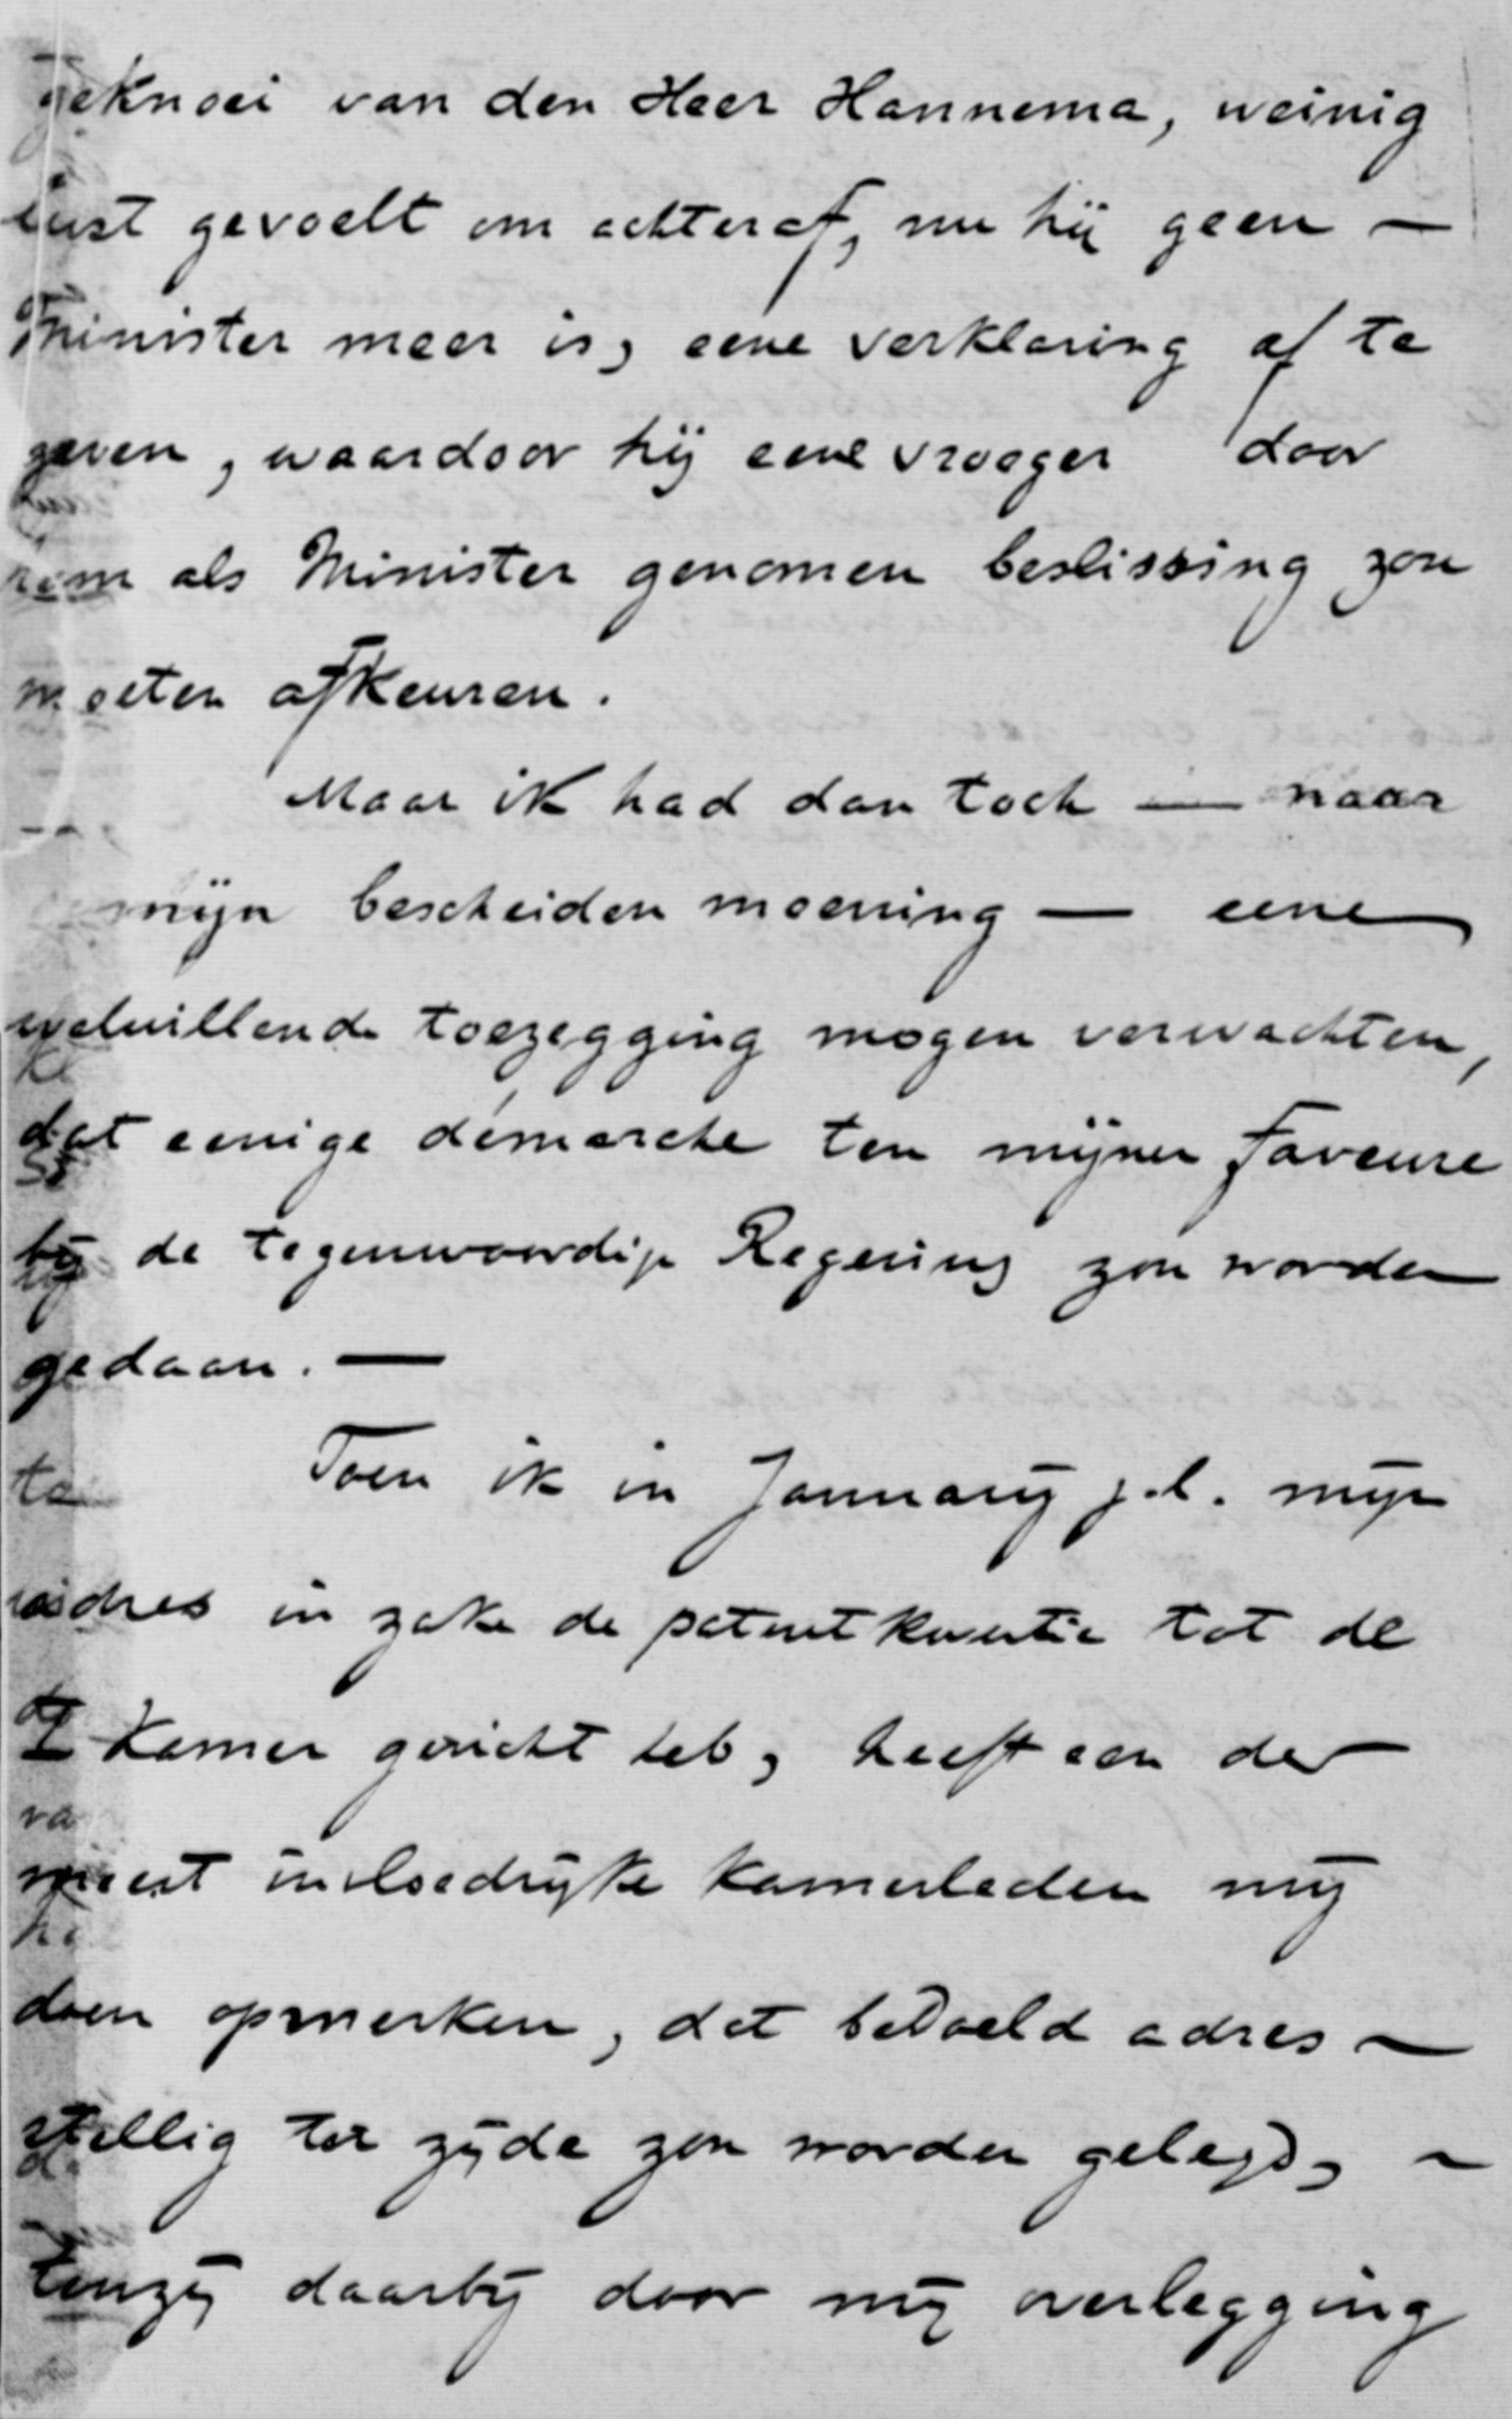 geknoei van den Heer Hannema, weinig
lust gevoelt om achteraf, nu hij geen —
Minister meer is, eene verklaring af te
geven, waardoor hij eene vroeger door
hem als Minister genomen beslissing zou
moeten afkeuren.
Maar ik had dan toch — naar
mijn bescheiden meening — eene
welwillende toezegging mogen verwachten,
dat eenige démarche ten mijner faveure
bij de tegenwoordige Regering zou worden
gedaan. —
Toen ik in January j.l. mijn
adres in zake de patentkwestie tot de
2e Kamer gericht heb, heeft een der
meest invloedrijke Kamerleden mij
doen opmerken, dat bedoeld adres —
stellig ter zijde zou worden gelegd, —
tenzij daarbij door mij overlegging